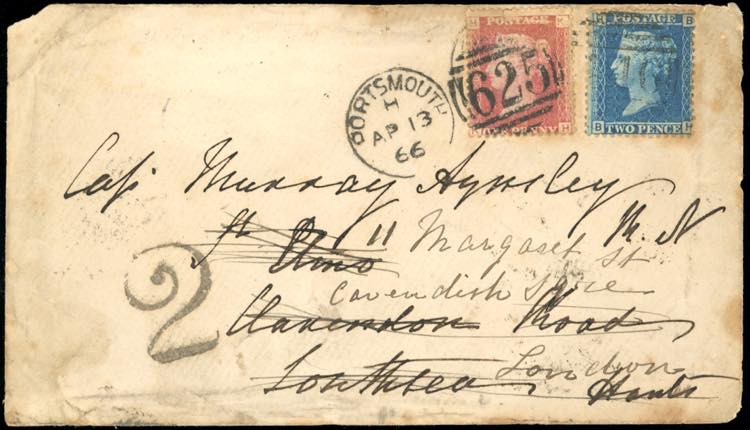 POSTAGE
POSTAGE
PENNY
TWO PENCE
PORTSMOUTH
AP 13
66
625
Cap Murray Aynsley
R. N
St 11 Margaret St
Elmo
Cavendish Sqre
Clarendon Road
London
Southsea Hants
2